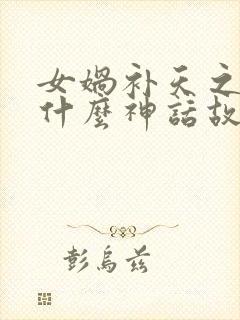 女媧补天之
什麼神話故
彭烏兹